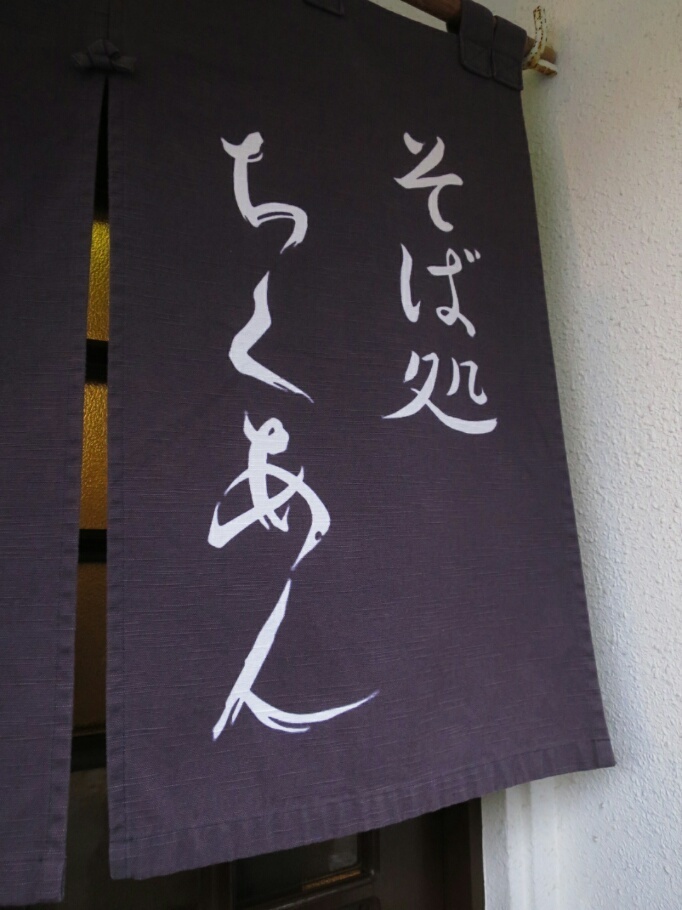 そば処
ちくあん